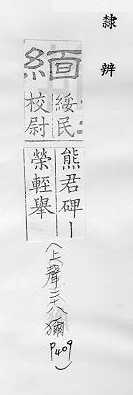 隸辨
緬
綏民
校尉
熊君碑丨
榮輕舉
(上聲二十八獮 P409)